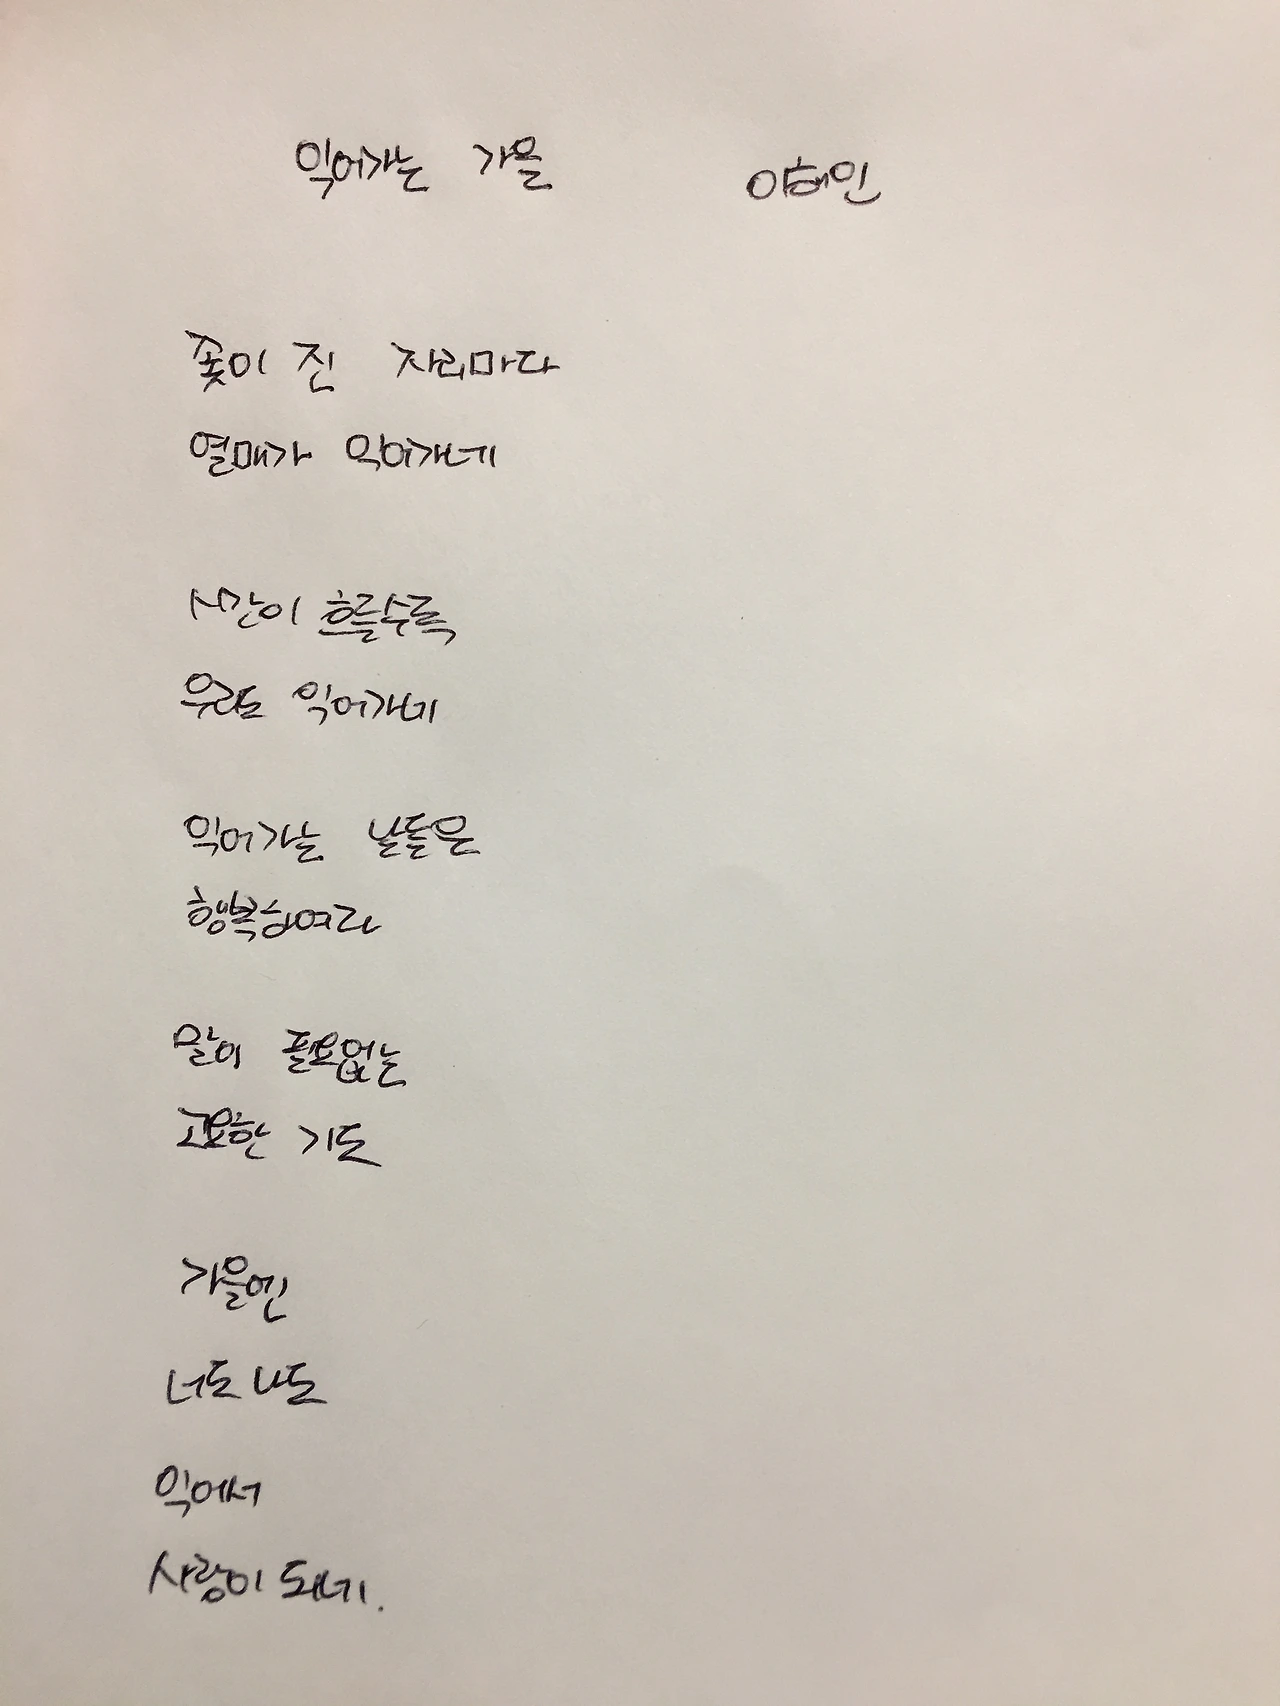 익어가는 가을 이해인
꽃이 진 자리마다
열매가 익어가네
시간이 흐를수록
우리도 익어가네
익어가는 날들은
행복하여라
말이 필요없는
고요한 기도
가을엔
너도 나도
익어서
사랑이 되네.